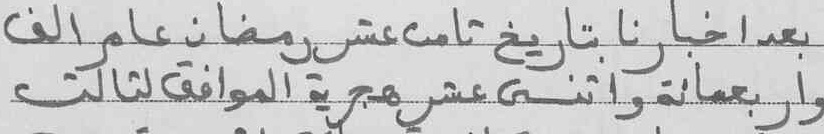 بعد اخبارنا بتاريخ تامن عشر رمضان عام الف
واربعمائة واتنى عشر هجرية الموافق لتالت